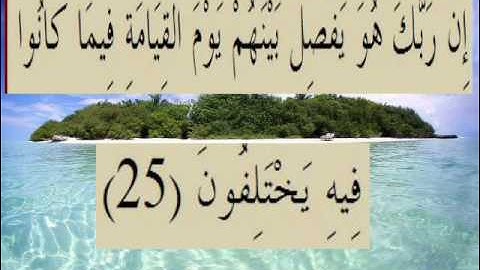 إِن رَبَّكَ هُوَ يَفصِلُ بَيْنَهُمْ يَوْمَ الْقِيَامَةِ فِيمَا كَانُوا
فِيهِ يَخْتَلِفُونَ (25)